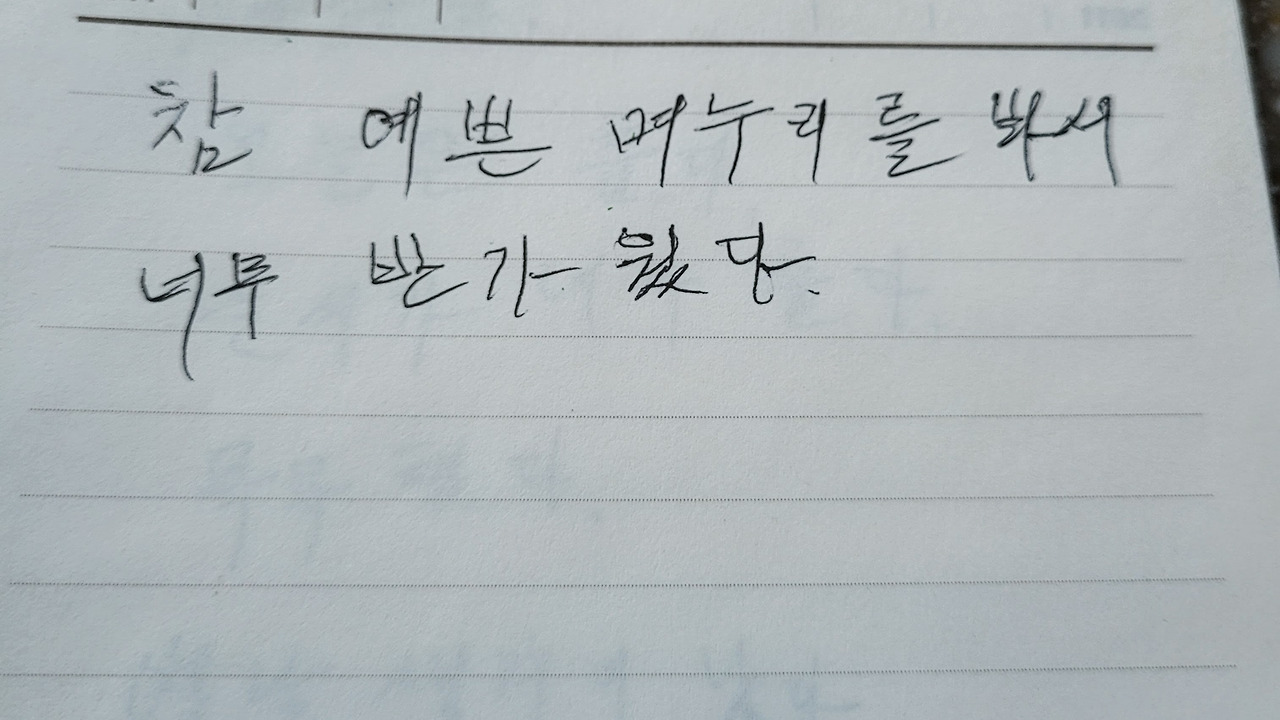 참 예쁜 며누리를 봐서
너무 반가웠당.